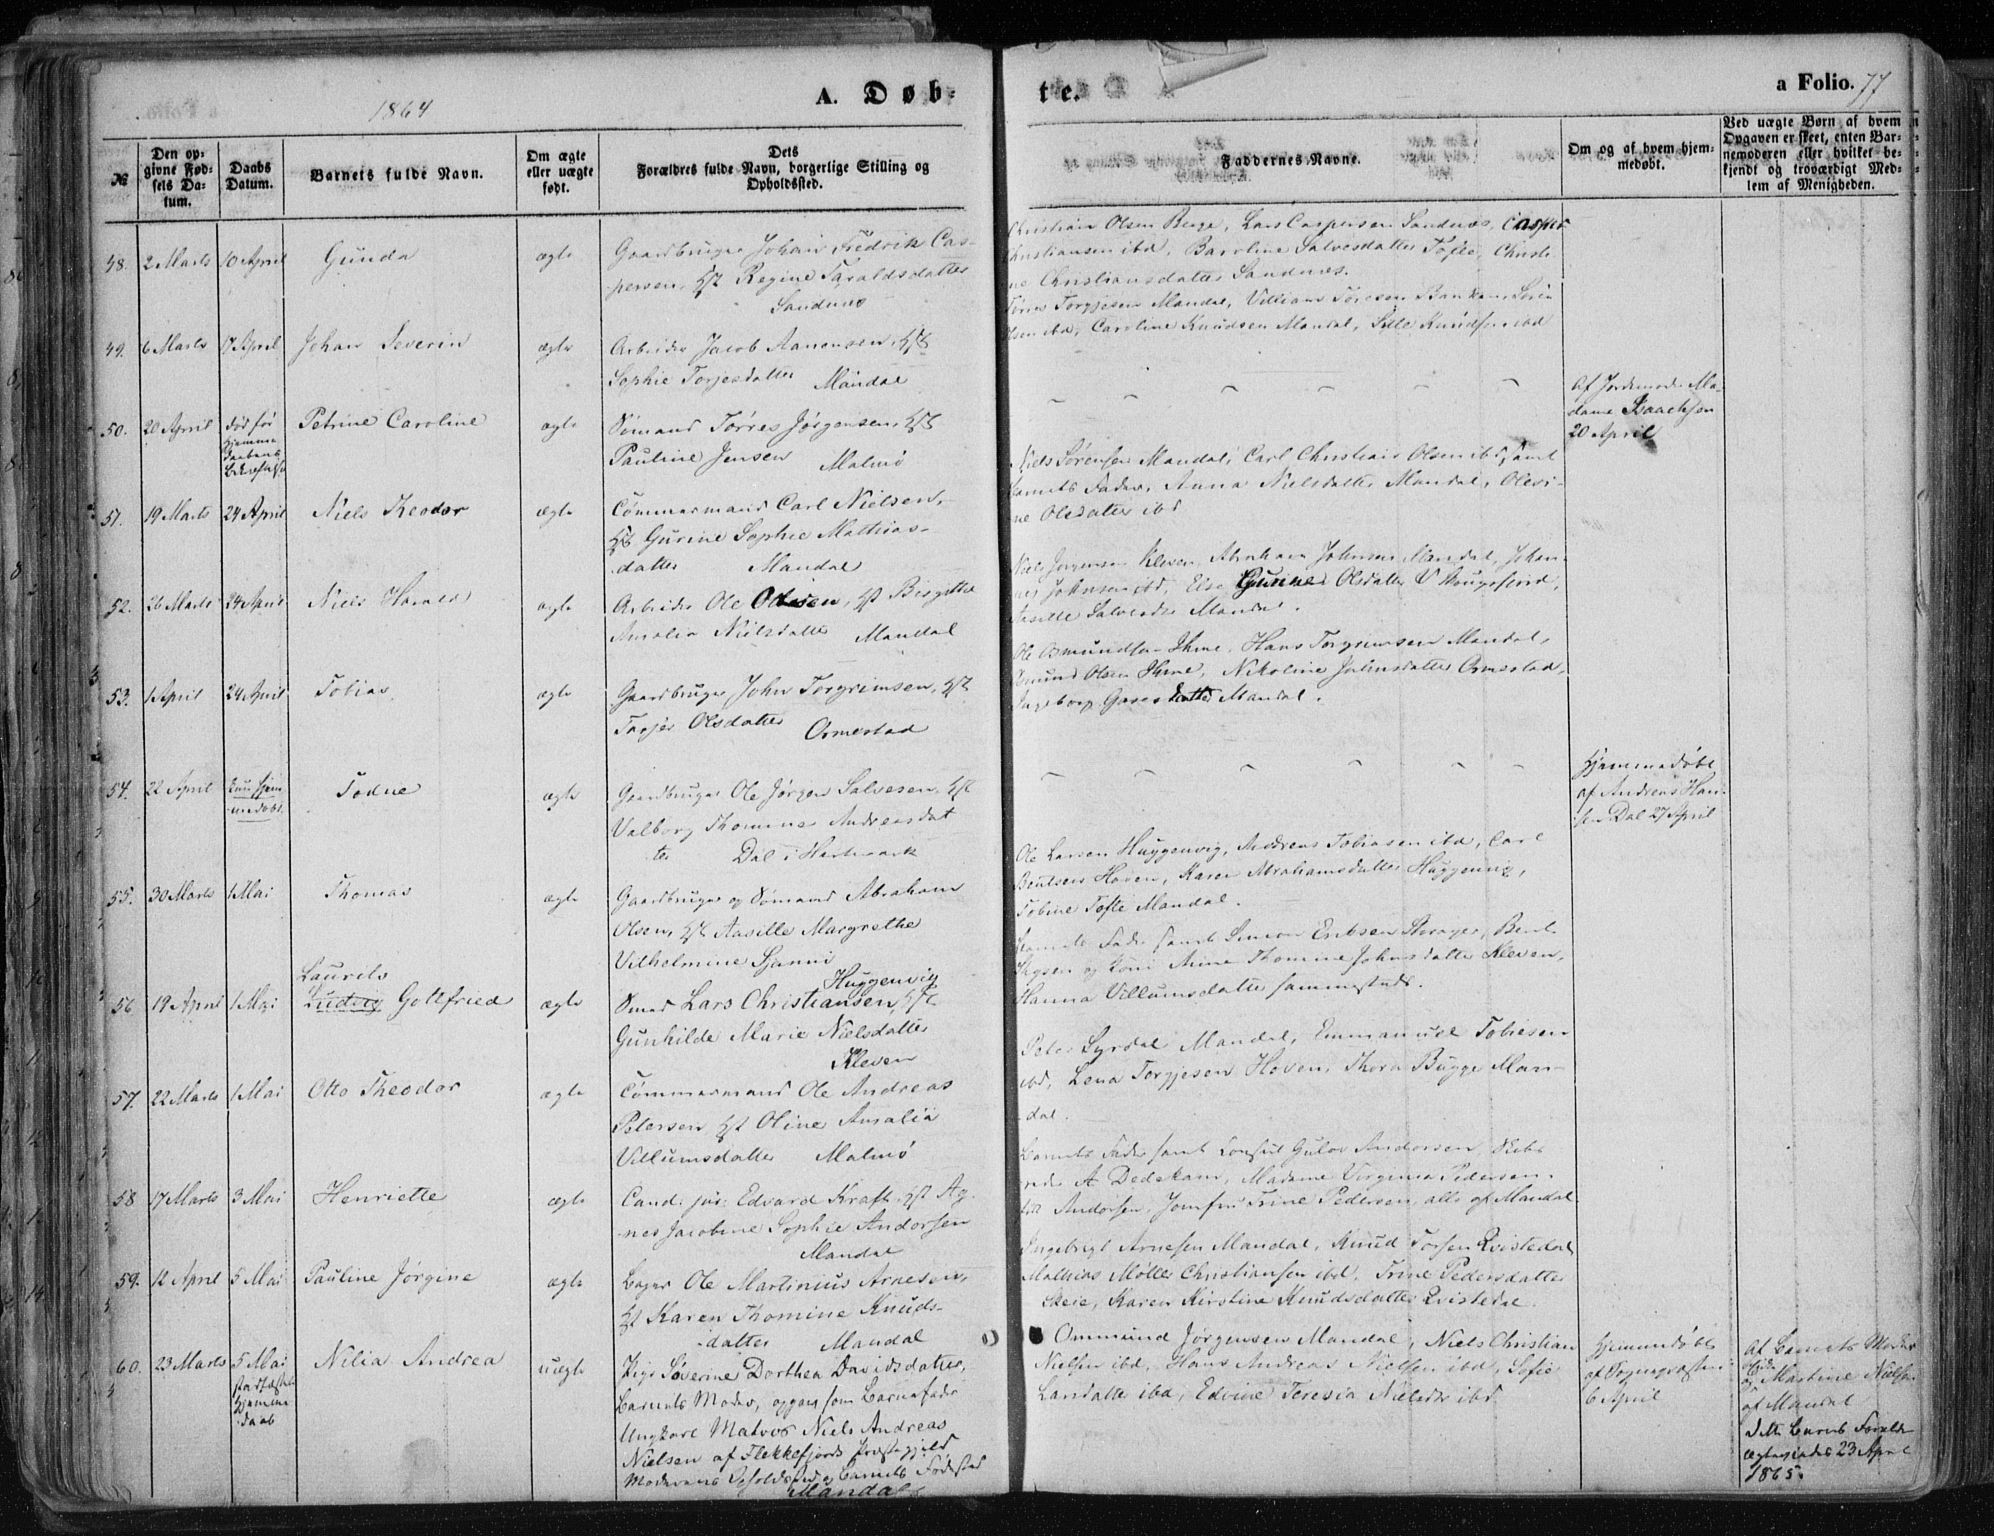 1864
A. Døb-
te.
a Folio. 77
№
Den op-
givne Fød-
sels Da-
tum.
Daabs
Datum.
Barnets fulde Navn.
Om ægte
eller uægte
født.
Dets
Forældres fulde Navn, borgerlige Stilling og
Opholdssted.
Faddernes Navne.
Om og af hvem hjem-
medøbt.
Ved uægte Børn af hvem
Opgaven er skeet, enten Bar-
nemoderen eller hvilket be-
kjendt og troværdigt Med-
lem af Menigheden.
48. 2 Marts 10 April Gunda ægte Gaardbruger Johan Fredrik Cas-
persen, Hst Regine Taraldsdatter
Sandnes
Christian Olsen Berge, Lars Caspersen Sandnes, Casper
Christiansen ibd, Baroline Salvesdatter Tofte, Christi-
ne Christiansdatter Sandnes.
49. 6 Marts 17 April Johan Severin ægte Arbeider Jacob Aanensen, Hst
Sophie Torjesdatter Mandal
Tørres Torgjesen Mandal, Villiam Toresen Banken, Søren
Olsen ibd, Caroline Knudsen Mandal, Sille Knudsen ibd
50. 20 April død før
hjemme
daabens
bekræftelse
Petrine Caroline ægte Sømand Tørres Jørgensen, Hst
Pauline Jensen Malmø
af Jordemoder Ma-
dame Isaachsen
20 April
51. 19 Marts 24 April Niels Theodor ægte Tømmermand Carl Nielsen,
Hst Gurine Sophie Mathias-
datter Mandal
Niels Sørensen Mandal, Carl Christian Olsen ibd, samt
Barnets Fader, Anna Nielsdatter Mandal, Olevi-
ne Olsdatter ibd
52. 26 Marts 24 April Niels Harald ægte Arbeider Ole Olsen, Hst Birgitte
Amalia Nielsdatter Mandal
Niels Jørgensen Kleven, Abraham Johnsen Mandal, Johan-
nes Johnsen ibd, Else Gurine Olsdatter
Aasille Salvesdtr Mandal.
53. 1 April 24 April Tobias ægte Gaardbruger John Torgrimsen, Hst
Tarjer Olsdatter Ormestad
Ole Osmundsen Ihme, Hans Torgrimsen Mandal,
Osmund Olsen Ihme, Nikoline Johnsdatter Ormestad,
Ingeborg datter Mandal.
54. 22 April Kun hjem-
medøbt.
Todne ægte Gaardbruger Ole Jørgen Salvesen, Hst
Valborg Thomine Andreasdat
ter Dal i Hartmark
Hjemmedøbt
af Andreas Han-
sen Dal 27 April
55. 30 Marts 1 Mai Thomas ægte Gaardbruger og Sømand Abraham
Olsen, Hst Aasille Margrethe
Vilhelmine
Huggenvig
Ole Larsen Huggenvig, Andreas Tobiasen ibd, Carl
Bentsen Hoven, Karen Abrahamsdatter Huggenvig,
Tobine Tofte Mandal.
56 19 April 1 Mai Laurits
Ludvig Gottfried ægte Smed Lars Christiansen, Hst
Gunhilde Marie Nielsdatter
Kleven
Barnets Fader samt Simon Eriksen Bernt
Thysen og Kone Anne Thomine Johnsdatter Kleven,
Hanna Villumsdatter sammesteds.
57. 22 Marts 1 Mai Otto Theodor ægte Tømmermand Ole Andreas
Petersen, Hst Oline Amalia
Villumsdatter Malmø
Peter Syrdal Mandal, Emmanuel Tobiesen
ibd, Lena Torgjesen Hoven, Thora Bugge Man-
dal.
58 17 Marts 3 Mai Henriette ægte Cand. jur. Edvard Kraft, Hst Ag-
nes Jacobine Sophie Andorsen
Mandal
Barnets Fader samt Konsul Gulov Andorsen,
A Dedekam, Madame Virginia Pedersen,
Andorsen, Jomfru Trine Pedersen, alle af Mandal
59. 12 April 5 Mai Pauline Jørgine ægte Bager Ole Martinius Arnesen,
Hst Karen Thomine Knuds-
datter Mandal
Ingebrigt Arnesen Mandal, Knud Torsen Qvistedal
Mathias Møller Christiansen ibd, Trine Pedersdatter
Skeie, Karen Kirstine Knudsdatter Qvistedal.
60. 23 Marts 5 Mai
stadfæstet
hjemme
daab
Nilia Andrea uægte Pige Søverine Dorthea Davidsdatter,
Barnets Moder, opgav som Barnefader
Ungkarl Matros Niels Andreas
Nielsen af Flekkefjords Præstegjeld
Moderens Opholdssted og Barnets Fødested
Mandal
Ommund Jørgensen Mandal, Niels Christian
Nielsen ibd, Hans Andreas Nielsen ibd, Sofie
Larsdatter ibd, Edvine Teresia Nielsdtr ibd
Hjemmedøbt
af
6 April
af Barnets Moder
og Martine Nielsen
af Mandal
Dette Barns Foreldre
ægteviedes 23 April
1865.